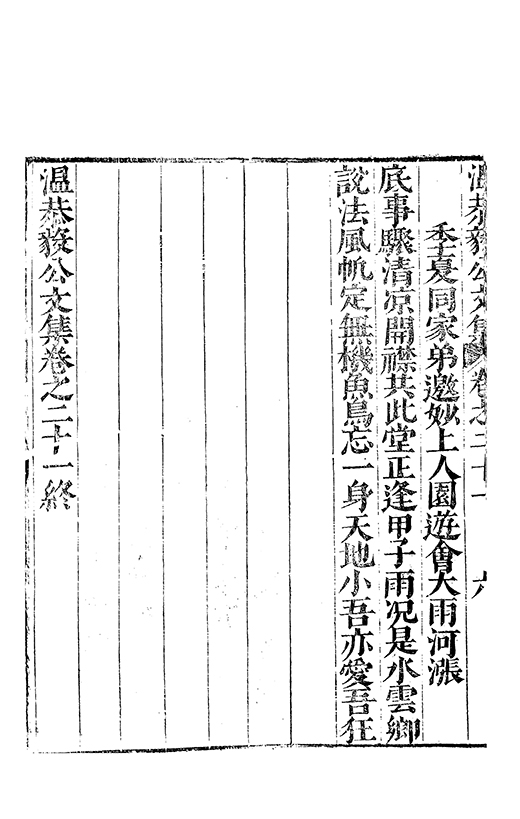 溫恭毅公文集卷之二十一 六
季夏同家弟邀妙上人園遊會大雨河漲
底事驟清凉開襟共此堂正逢甲子雨况是水雲鄉
說法風帆定無機魚鳥忘一身天地小吾亦愛吾狂
溫恭毅公文集卷之二十一終